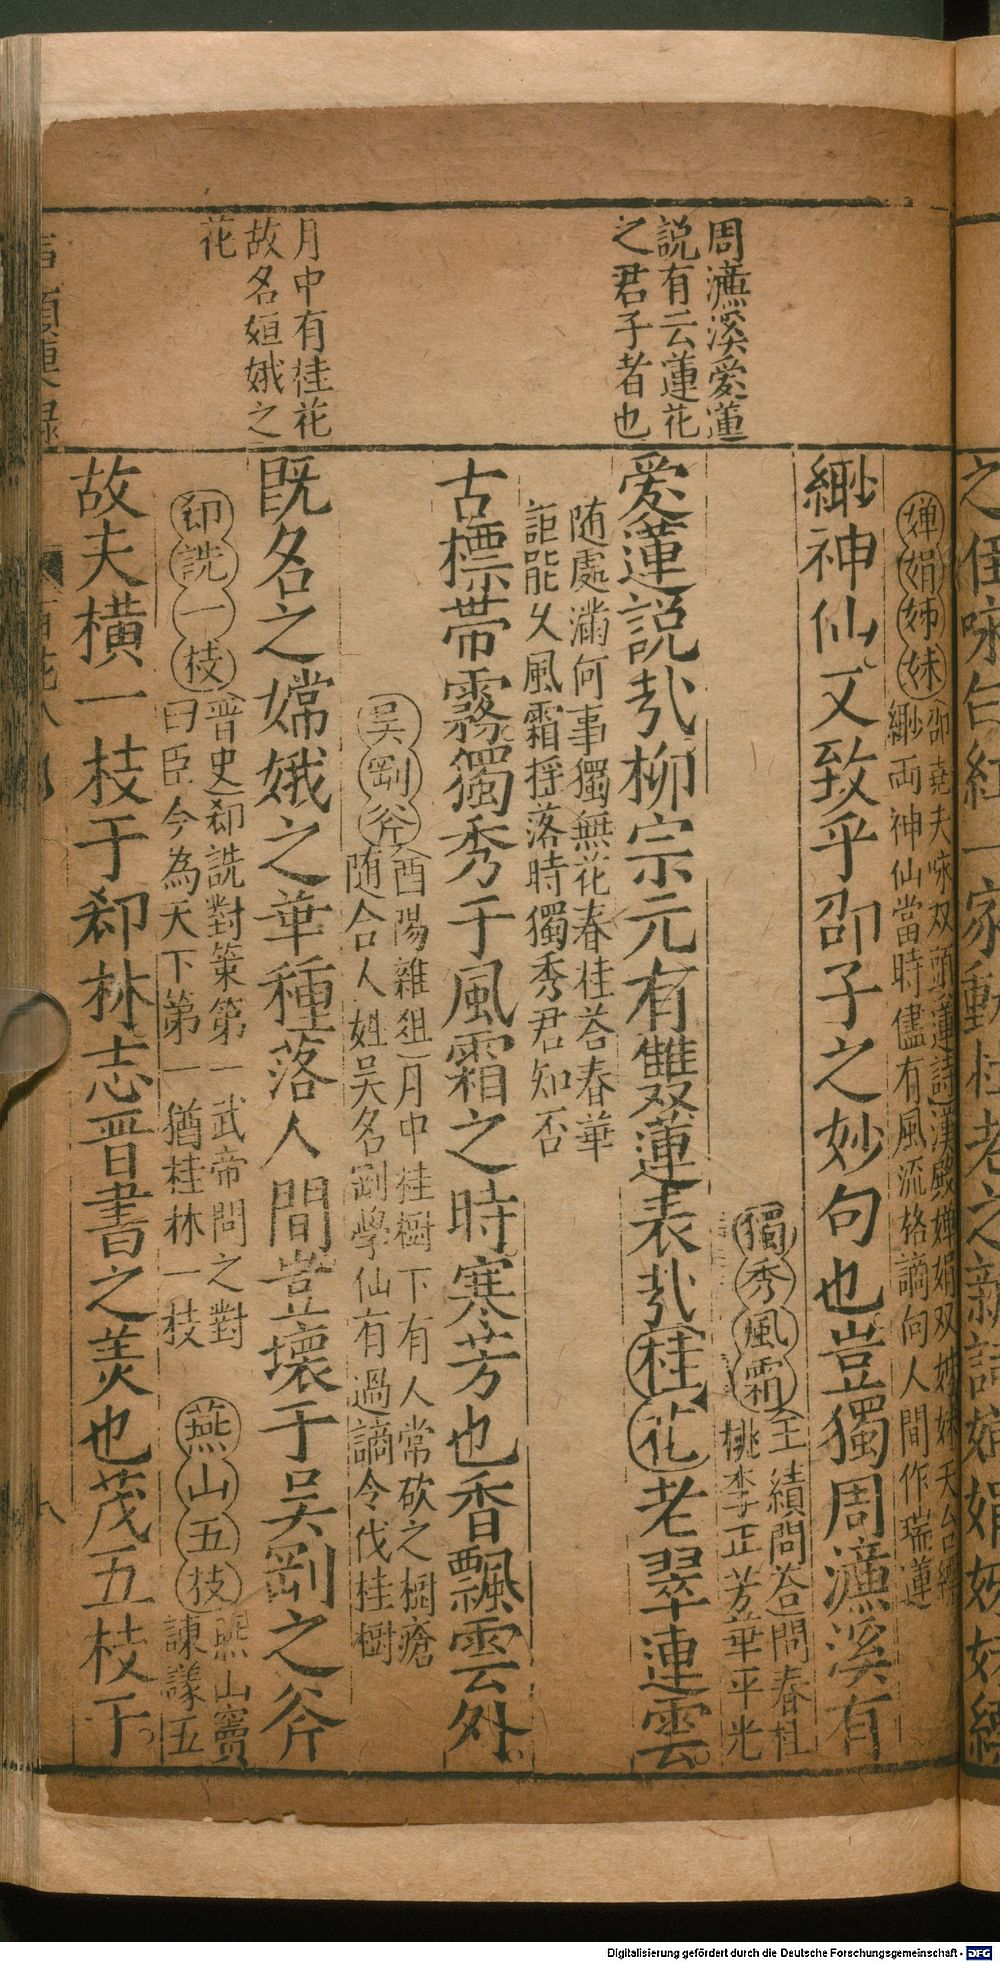 周濂溪愛蓮
説有云蓮花
之君子者也
月中有桂花
故名姮娥之
花
嬋娟姊妹
邵堯夫咏双頭蓮詩漢殿嬋娟双姊妹天台縹
緲両神仙當時儘有風流格謫向人間作瑞蓮
緲神仙又致乎邵子之妙句也豈獨周濂溪有
獨秀風霜
王績問荅問春桂
桃李正芳華平光
愛蓮説㢤柳宗元有雙蓮表㢤桂花老翠連雲
随處滿何事獨無花春桂荅春華
詎能久風霜摇落時獨秀君知否
古標帯霧獨秀于風霜之時寒芳也香飄雲外
吴剛斧
酉陽雜俎月中桂樹下有人常砍之樹瘡
随合人姓吴名剛學仙有過謫令伐桂樹
既名之嫦娥之華種落人間豈壞于吴剛之斧
郤詵一枝
晋史郤詵對策第一武帝問之對
曰臣今為天下第一猶桂林一枝
燕山五枝
燕山竇
諫議五
故夫横一枝于郤林志晋書之羙也茂五枝于
八